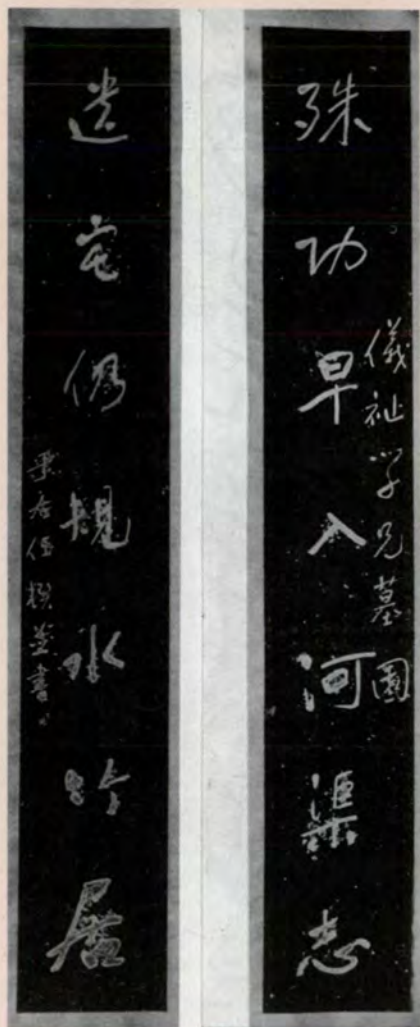 殊功早入河渠志
儀祉學兄墓園
遺宅仍規水竹居
右任撰並書